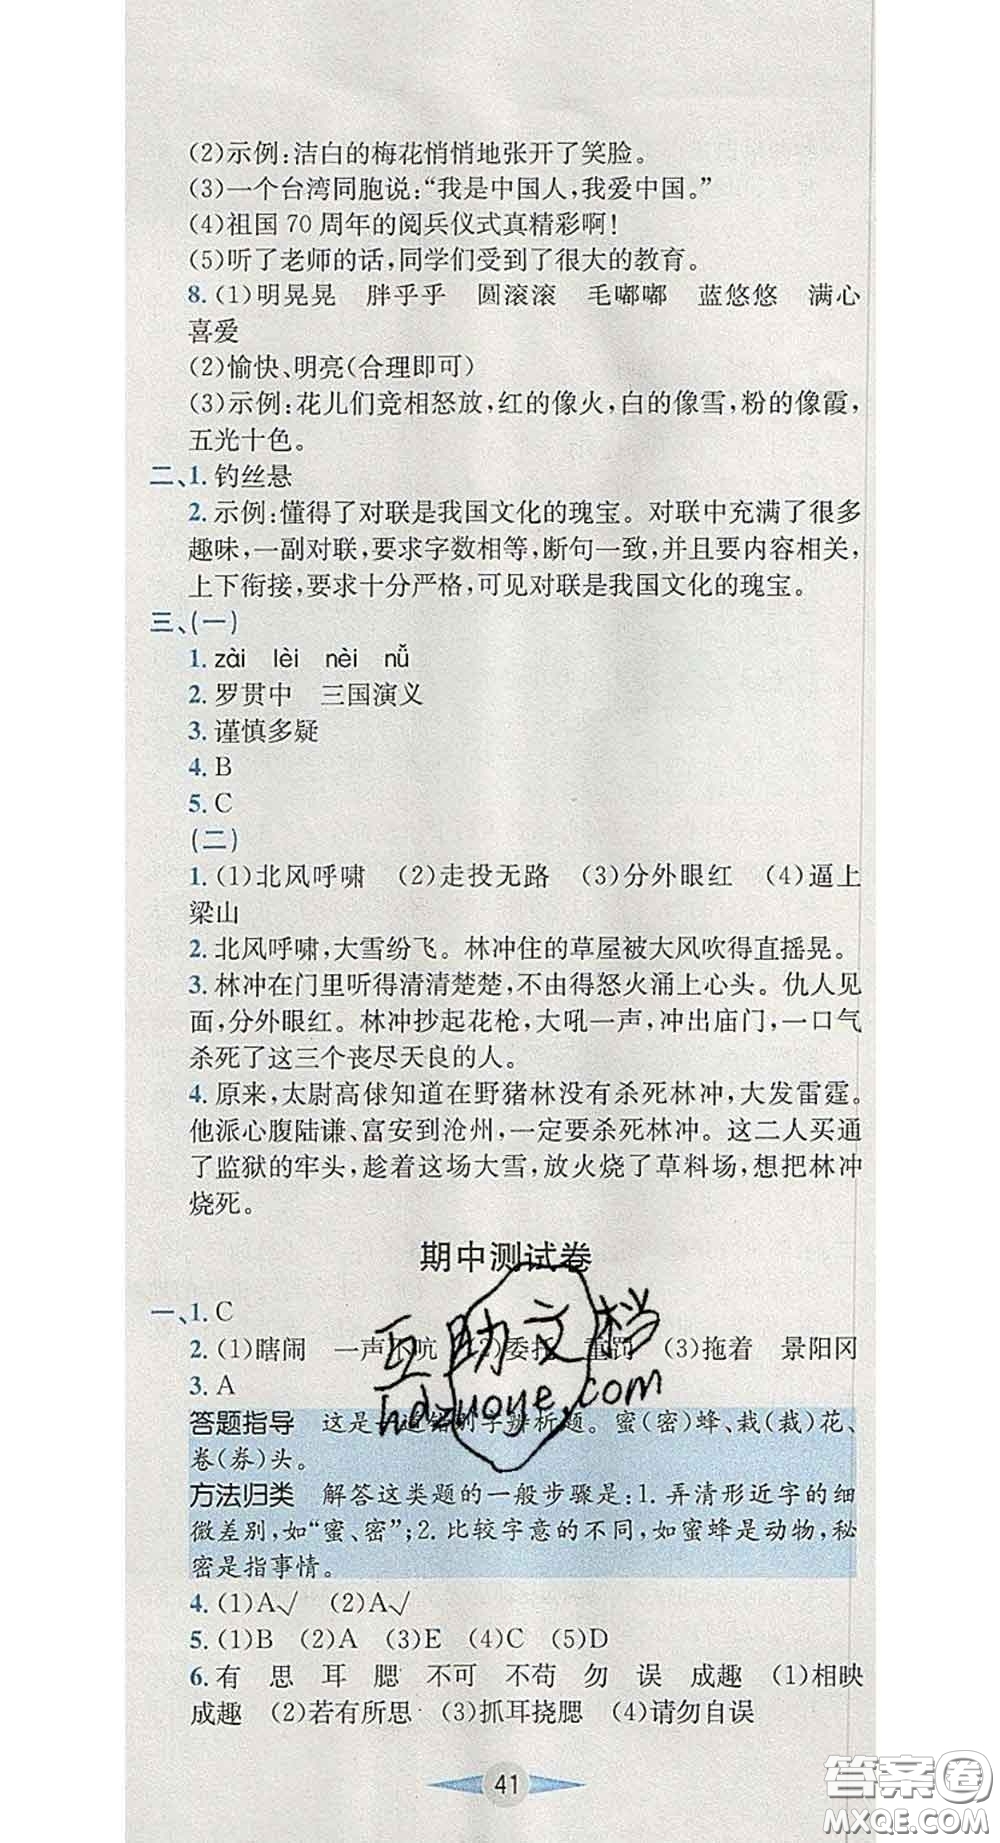 (2)示例:洁白的梅花悄悄地张开了笑脸。
(3)一个台湾同胞说:“我是中国人,我爱中国。”
(4)祖国 70 周年的阅兵仪式真精彩啊!
(5)听了老师的话,同学们受到了很大的教育。
8. (1)明晃晃 胖乎乎 圆滚滚 毛嘟嘟 蓝悠悠 满心
喜爱
(2)愉快、明亮(合理即可)
(3)示例:花儿们竞相怒放,红的像火,白的像雪,粉的像霞,
五光十色。
二、1. 钓丝悬
2. 示例:懂得了对联是我国文化的瑰宝。对联中充满了很多
趣味,一副对联,要求字数相等,断句一致,并且要内容相关,
上下衔接,要求十分严格,可见对联是我国文化的瑰宝。
三、(一)
1. zài lèi nèi nǚ
2. 罗贯中 三国演义
3. 谨慎多疑
4. B
5. C
(二)
1. (1)北风呼啸 (2)走投无路 (3)分外眼红 (4)逼上
梁山
2. 北风呼啸,大雪纷飞。林冲住的草屋被大风吹得直摇晃。
3. 林冲在门里听得清清楚楚,不由得怒火涌上心头。仇人见
面,分外眼红。林冲抄起花枪,大吼一声,冲出庙门,一口气
杀死了这三个丧尽天良的人。
4. 原来,太尉高俅知道在野猪林没有杀死林冲,大发雷霆。
他派心腹陆谦、富安到沧州,一定要杀死林冲。这二人买通
了监狱的牢头,趁着这场大雪,放火烧了草料场,想把林冲
烧死。
期中测试卷
一、1. C
2. (1)瞎闹 一声不吭 (2)委托 重罚 (3)拖着 景阳冈
3. A
答题指导 这是一道错别字辨析题。蜜(密)蜂、栽(裁)花、
卷(券)头。
方法归类 解答这类题的一般步骤是:1. 弄清形近字的细
微差别,如“蜜、密”;2. 比较字意的不同,如蜜蜂是动物,秘
密是指事情。
4. (1)A√ (2)A√
5. (1)B (2)A (3)E (4)C (5)D
6. 有 思 耳 腮 不可 不苟 勿 误 成趣 (1)相映
成趣 (2)若有所思 (3)抓耳挠腮 (4)请勿自误
41
互助文档
hdzuoye.com
答案圈
MXQE.COM